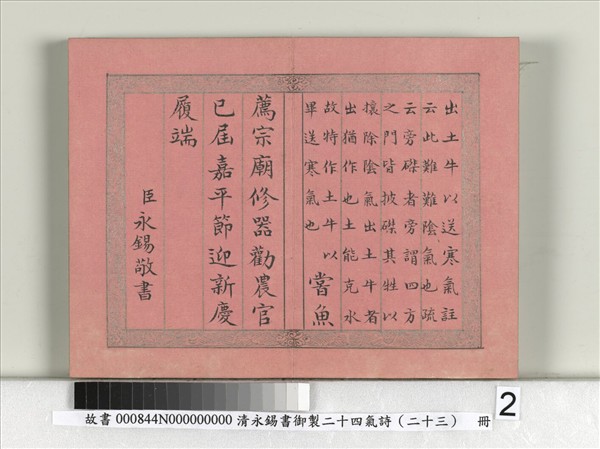 出土牛以送寒氣註
云此難難陰氣也疏
云旁磔者旁謂四方
之門皆披磔其牲以
攘除陰氣出土牛者
出猶作也土能克水
故特作土牛以
畢送寒氣也
嘗魚
薦宗廟修器勸農官
已屆嘉平節迎新慶
履端
臣永錫敬書
故書 000844N000000000 清永錫書御製二十四氣詩（二十三） 冊
2